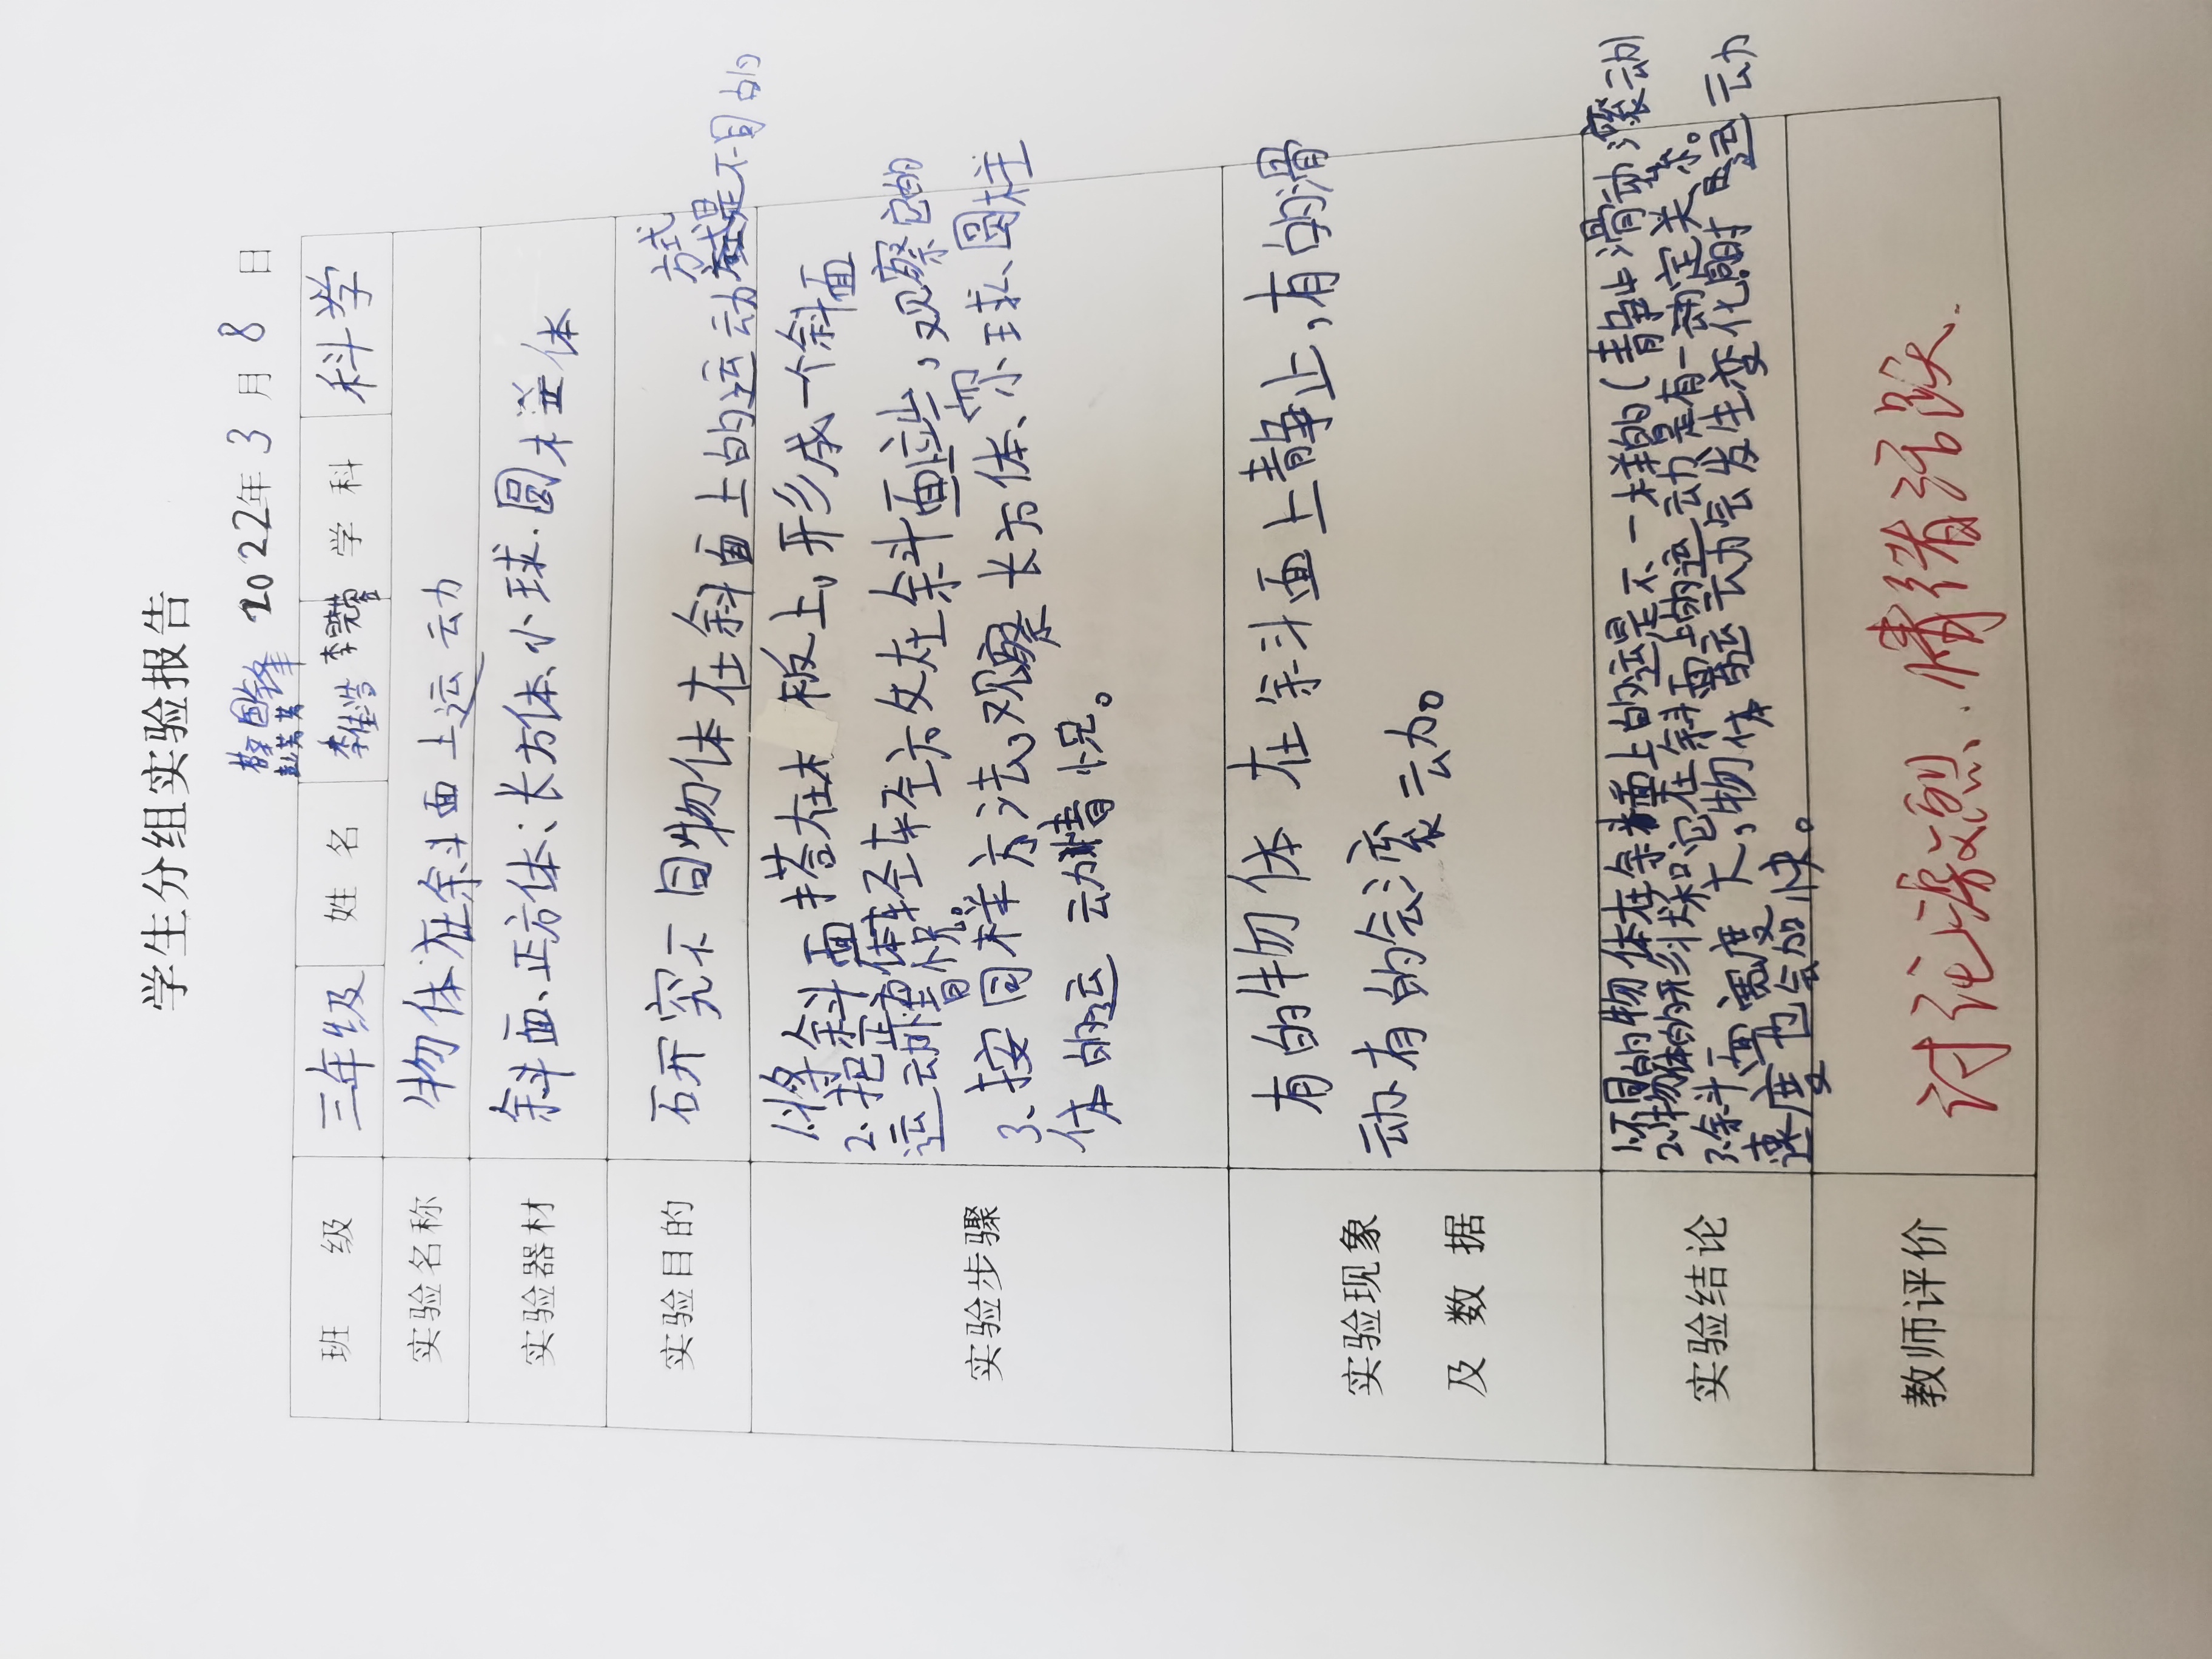 学生分组实验报告
2022年3月8日
班 级 三年级 姓 名 学 科 科学
实验名称 物体在斜面上运动
实验器材 斜面、正方体、长方体、小球、圆柱体
方式
实验目的 研究不同物体在斜面上的运动是不同的
实验步骤
1.将斜面搭在木板上,形成一个斜面
2.把正方体轻轻放在斜面 ,观察它的
运动情况。
3.按同样方法,观察长方体、小球、圆柱
体的运动情况。
实验现象
及 数 据
有的物体在斜面上静止,有的滑
动有的会滚动。
实验结论
1.不同的物体在斜面上的运是不一样的(静止滑动滚动
2.物体的形状和它在斜面上的运动是有一定关系。
3.斜面 度大,物体 运动会发生变化 运动
速度也会加快。
教师评价 讨论激烈、情绪活跃.